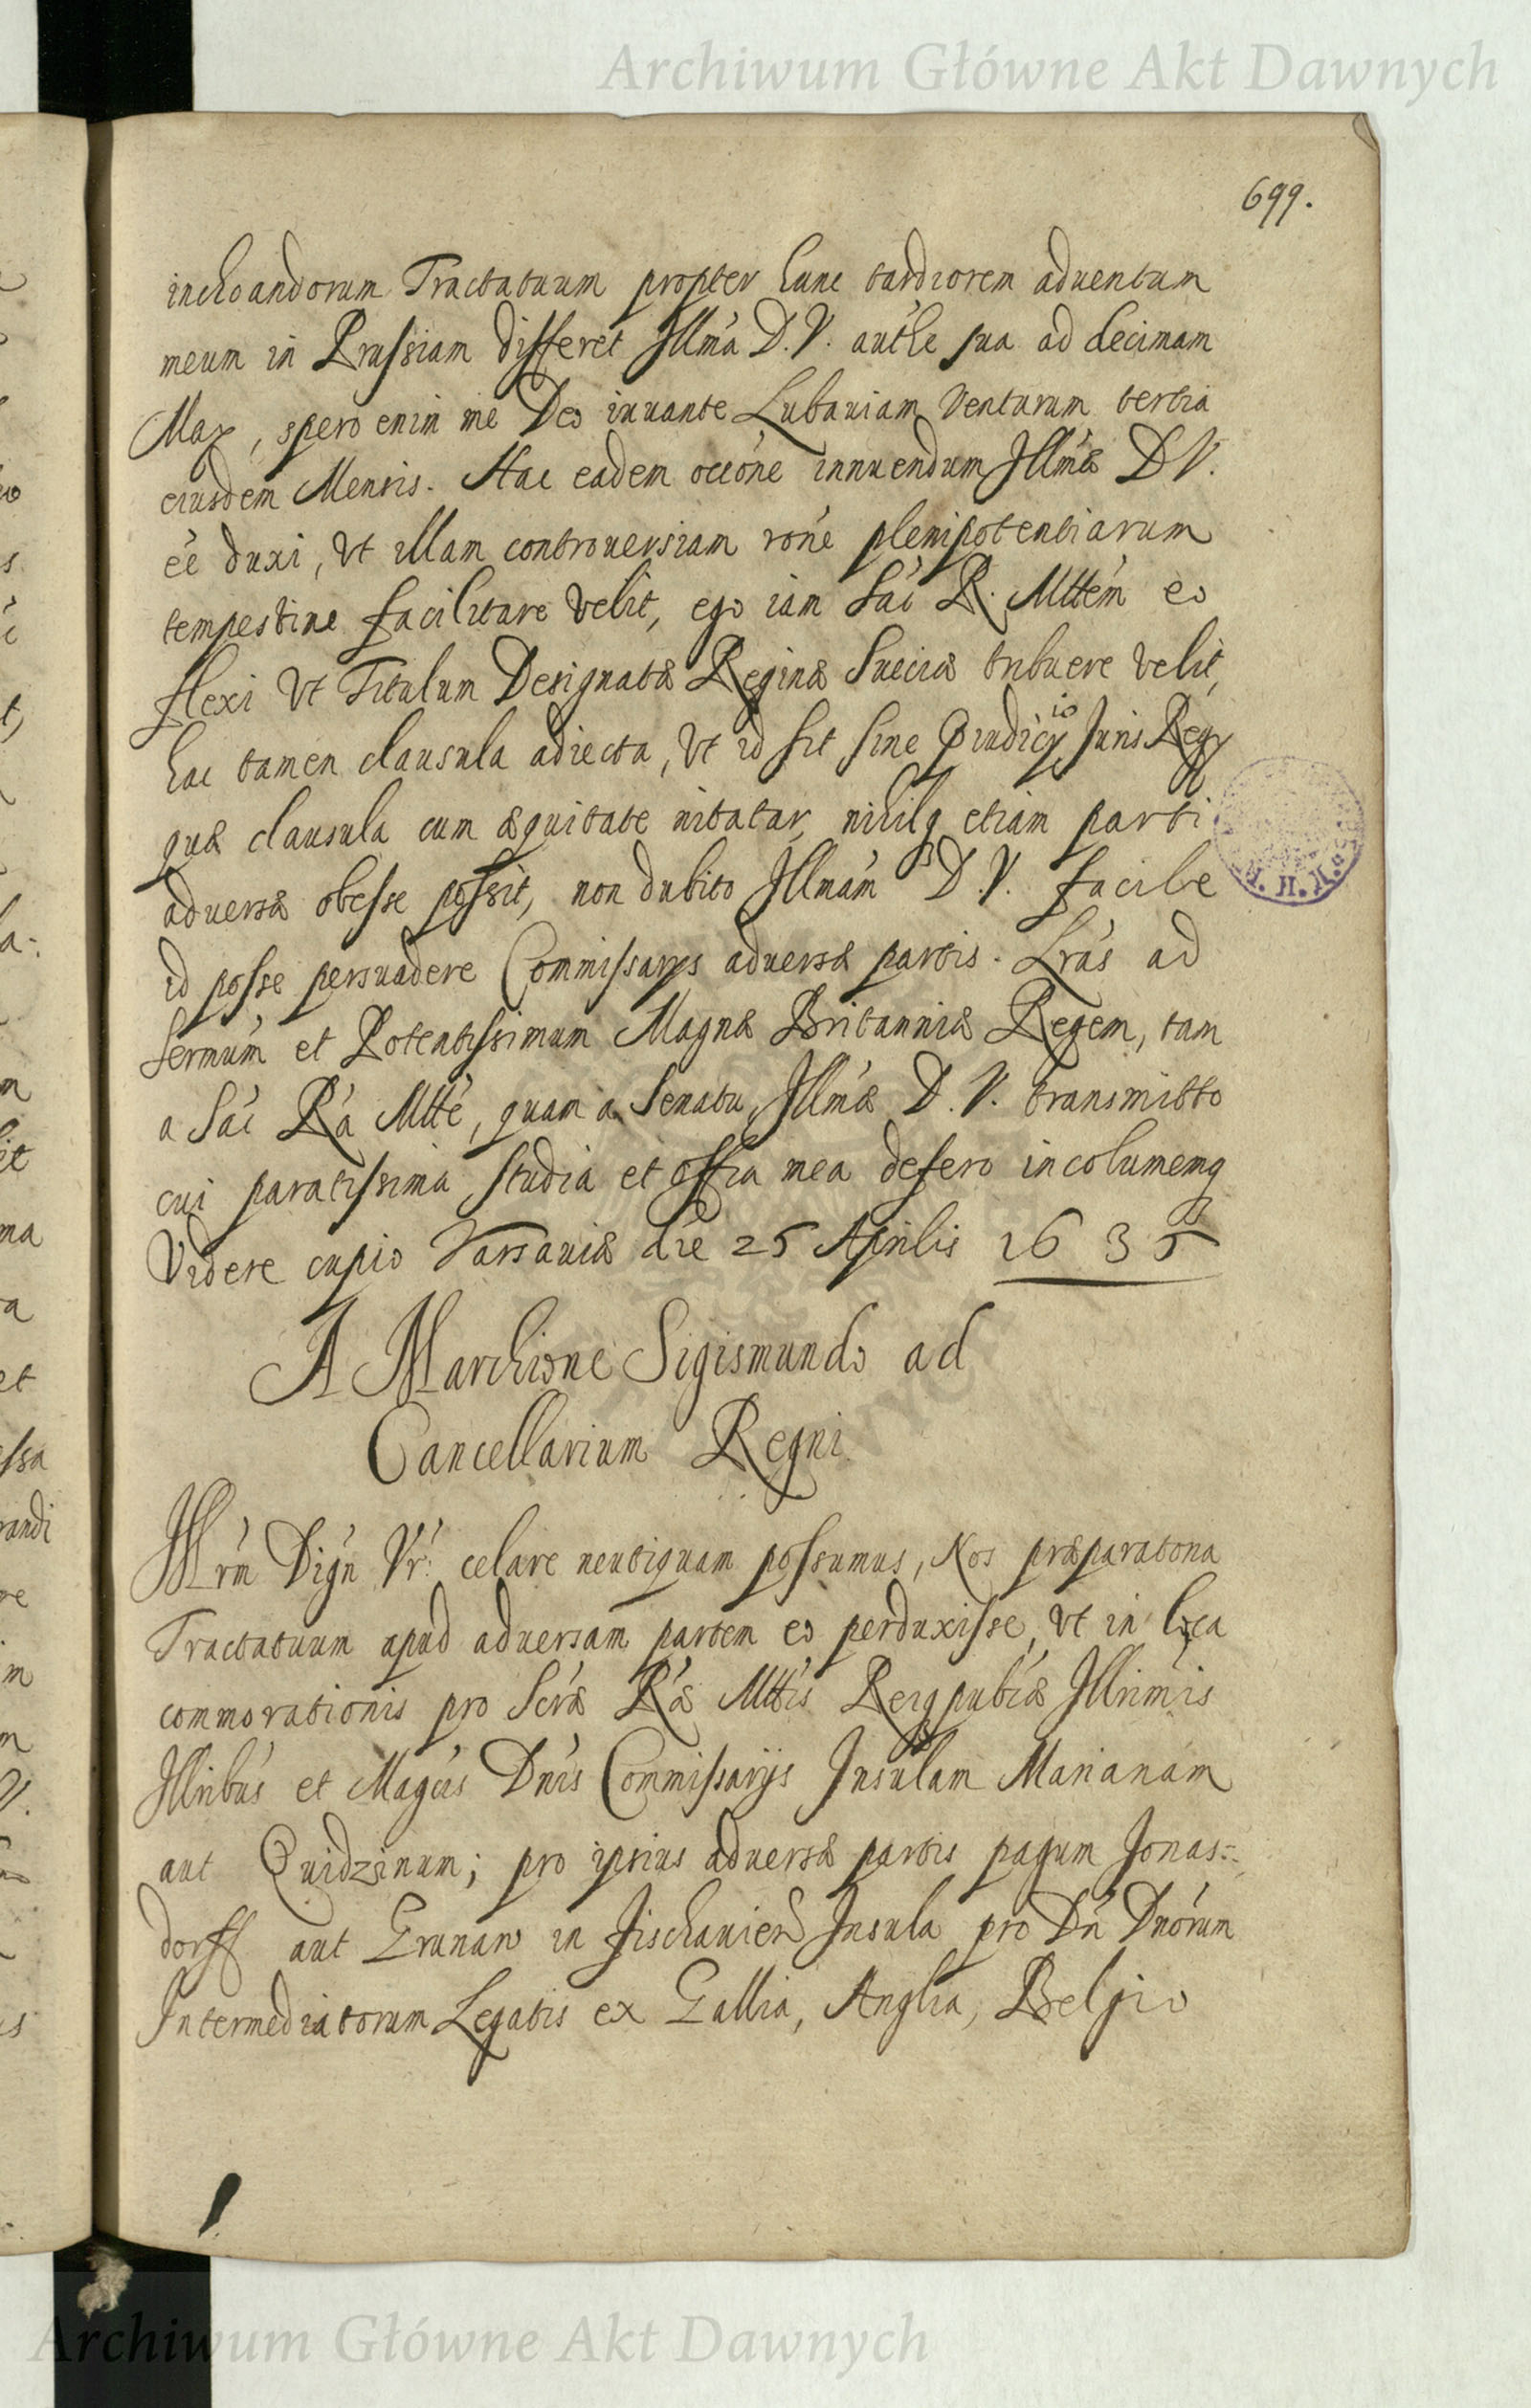 Archiwum Główne Akt Dawnych
699.
inchoandorum Tractatuum propter hunc tardiorem aduentum
meum in Prussiam differet Jllma D. V. authe sua ad decimam
May, spero enim me Deo iuuante Lubauiam Venturum tertia
eiusdem Mensis. Hac eadem occone innuendum Jllmæ D V.
ee duxi, Vt illam controuersiam rone plenipotentiarum
tempestiue facilitare Velit, ego iam Sac R. Mttem eo
flexi Vt Titulum Designatæ Reginæ Sueciæ tribuere Velit,
hac tamen clausula adiecta, Vt id sit sine Piudicy io Juris Regy
quæ clausula cum æquitate nitatur, nihilq etiam parti
aduersæ obesse possit, non dubito Jllmam D. V. facile
id posse persuadere Commissarys aduersæ partis. Lras ad
Sermum et Potentissimum Magnæ Britanniæ Regem, tam
a Sac Ra Mtte, quam a Senatu, Jllmæ D. V. transmitto
cui paratissima studia et offia mea defero incolumemq
Videre cupio Varsauiæ die 25 Aprilis 1635
A Marchione Sigismundo ad
Cancellarium Regni
Jllrm Dign Vr: celare neutiquam possumus, Nos præparatoria
Tractatuum apud aduersam partem eo perduxisse, Vt in loca
commorationis pro Scræ Ræ Mttis Reiqpublæ Jllrimis
Jllribus et Magcis Dnis Commissarijs Insulam Marianam
aut Quidzinum; pro ipsius aduersæ partis pagum Jonas=
dorff aut Grunaw in Fischauien Insula pro Dn Dnorum
Intermediatorum Legatis ex Gallia, Anglia, Belgio
Archiwum Główne Akt Dawnych